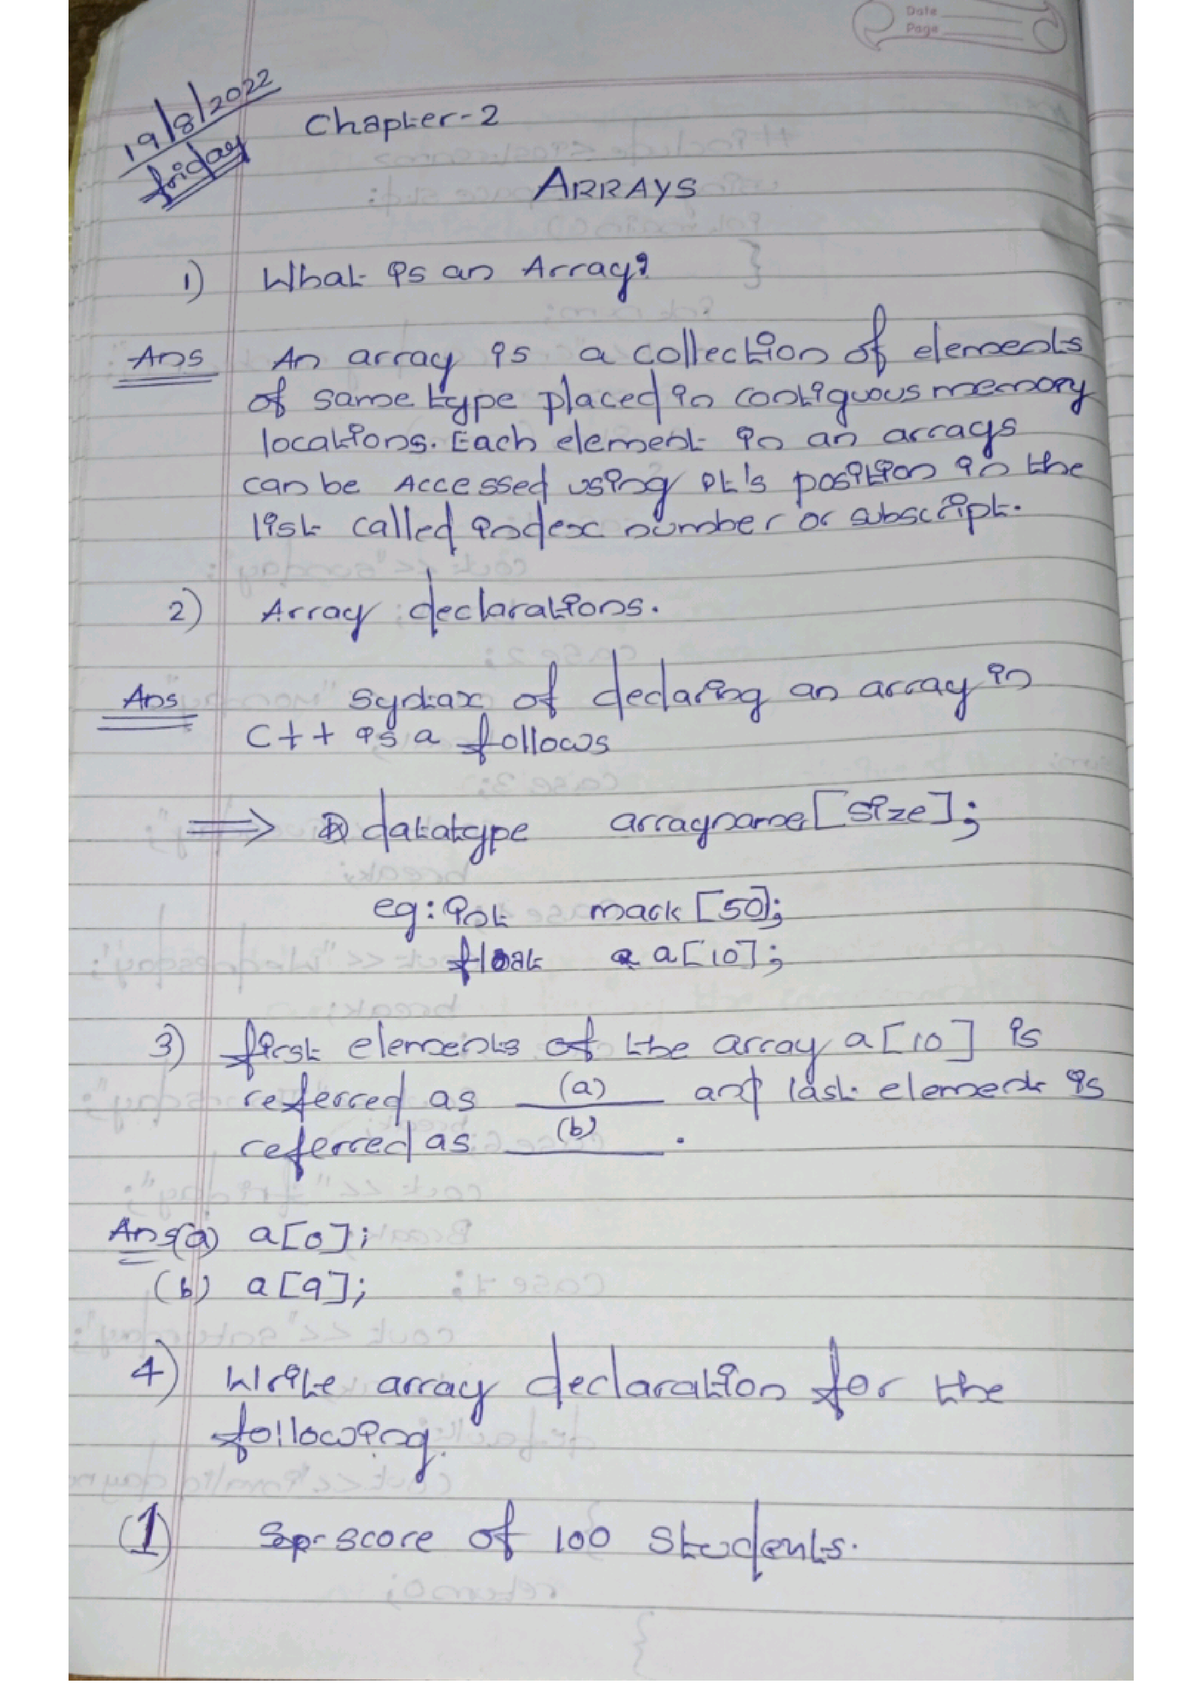 Date
Page
19/8/2022
friday
Chapter-2
ARRAYS
1) What is an Array?
Ans An array is a collection of elements
of same type placed in contiguous memory
locations. Each element in an arrays
can be Accessed using it's position in the
list called index number or subscript.
2) Array declarations.
Ans Syntax of declaring an array in
C++ is a follows
⇒ datatype arrayname[size];
eg: int mark [50];
float a[10];
3) first elements of the array a[10] is
referred as (a) and last element is
referred as (b) .
Ans(a) a[0];
(b) a[9];
4) Write array declaration for the
following.
(1) score of 100 students.